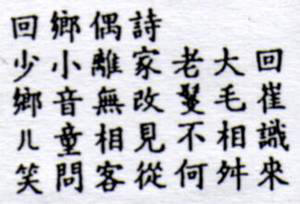 回鄉偶詩
少小離家老大回
鄉音無改鬢毛崔
儿童相見不相識
笑問客從何舛來